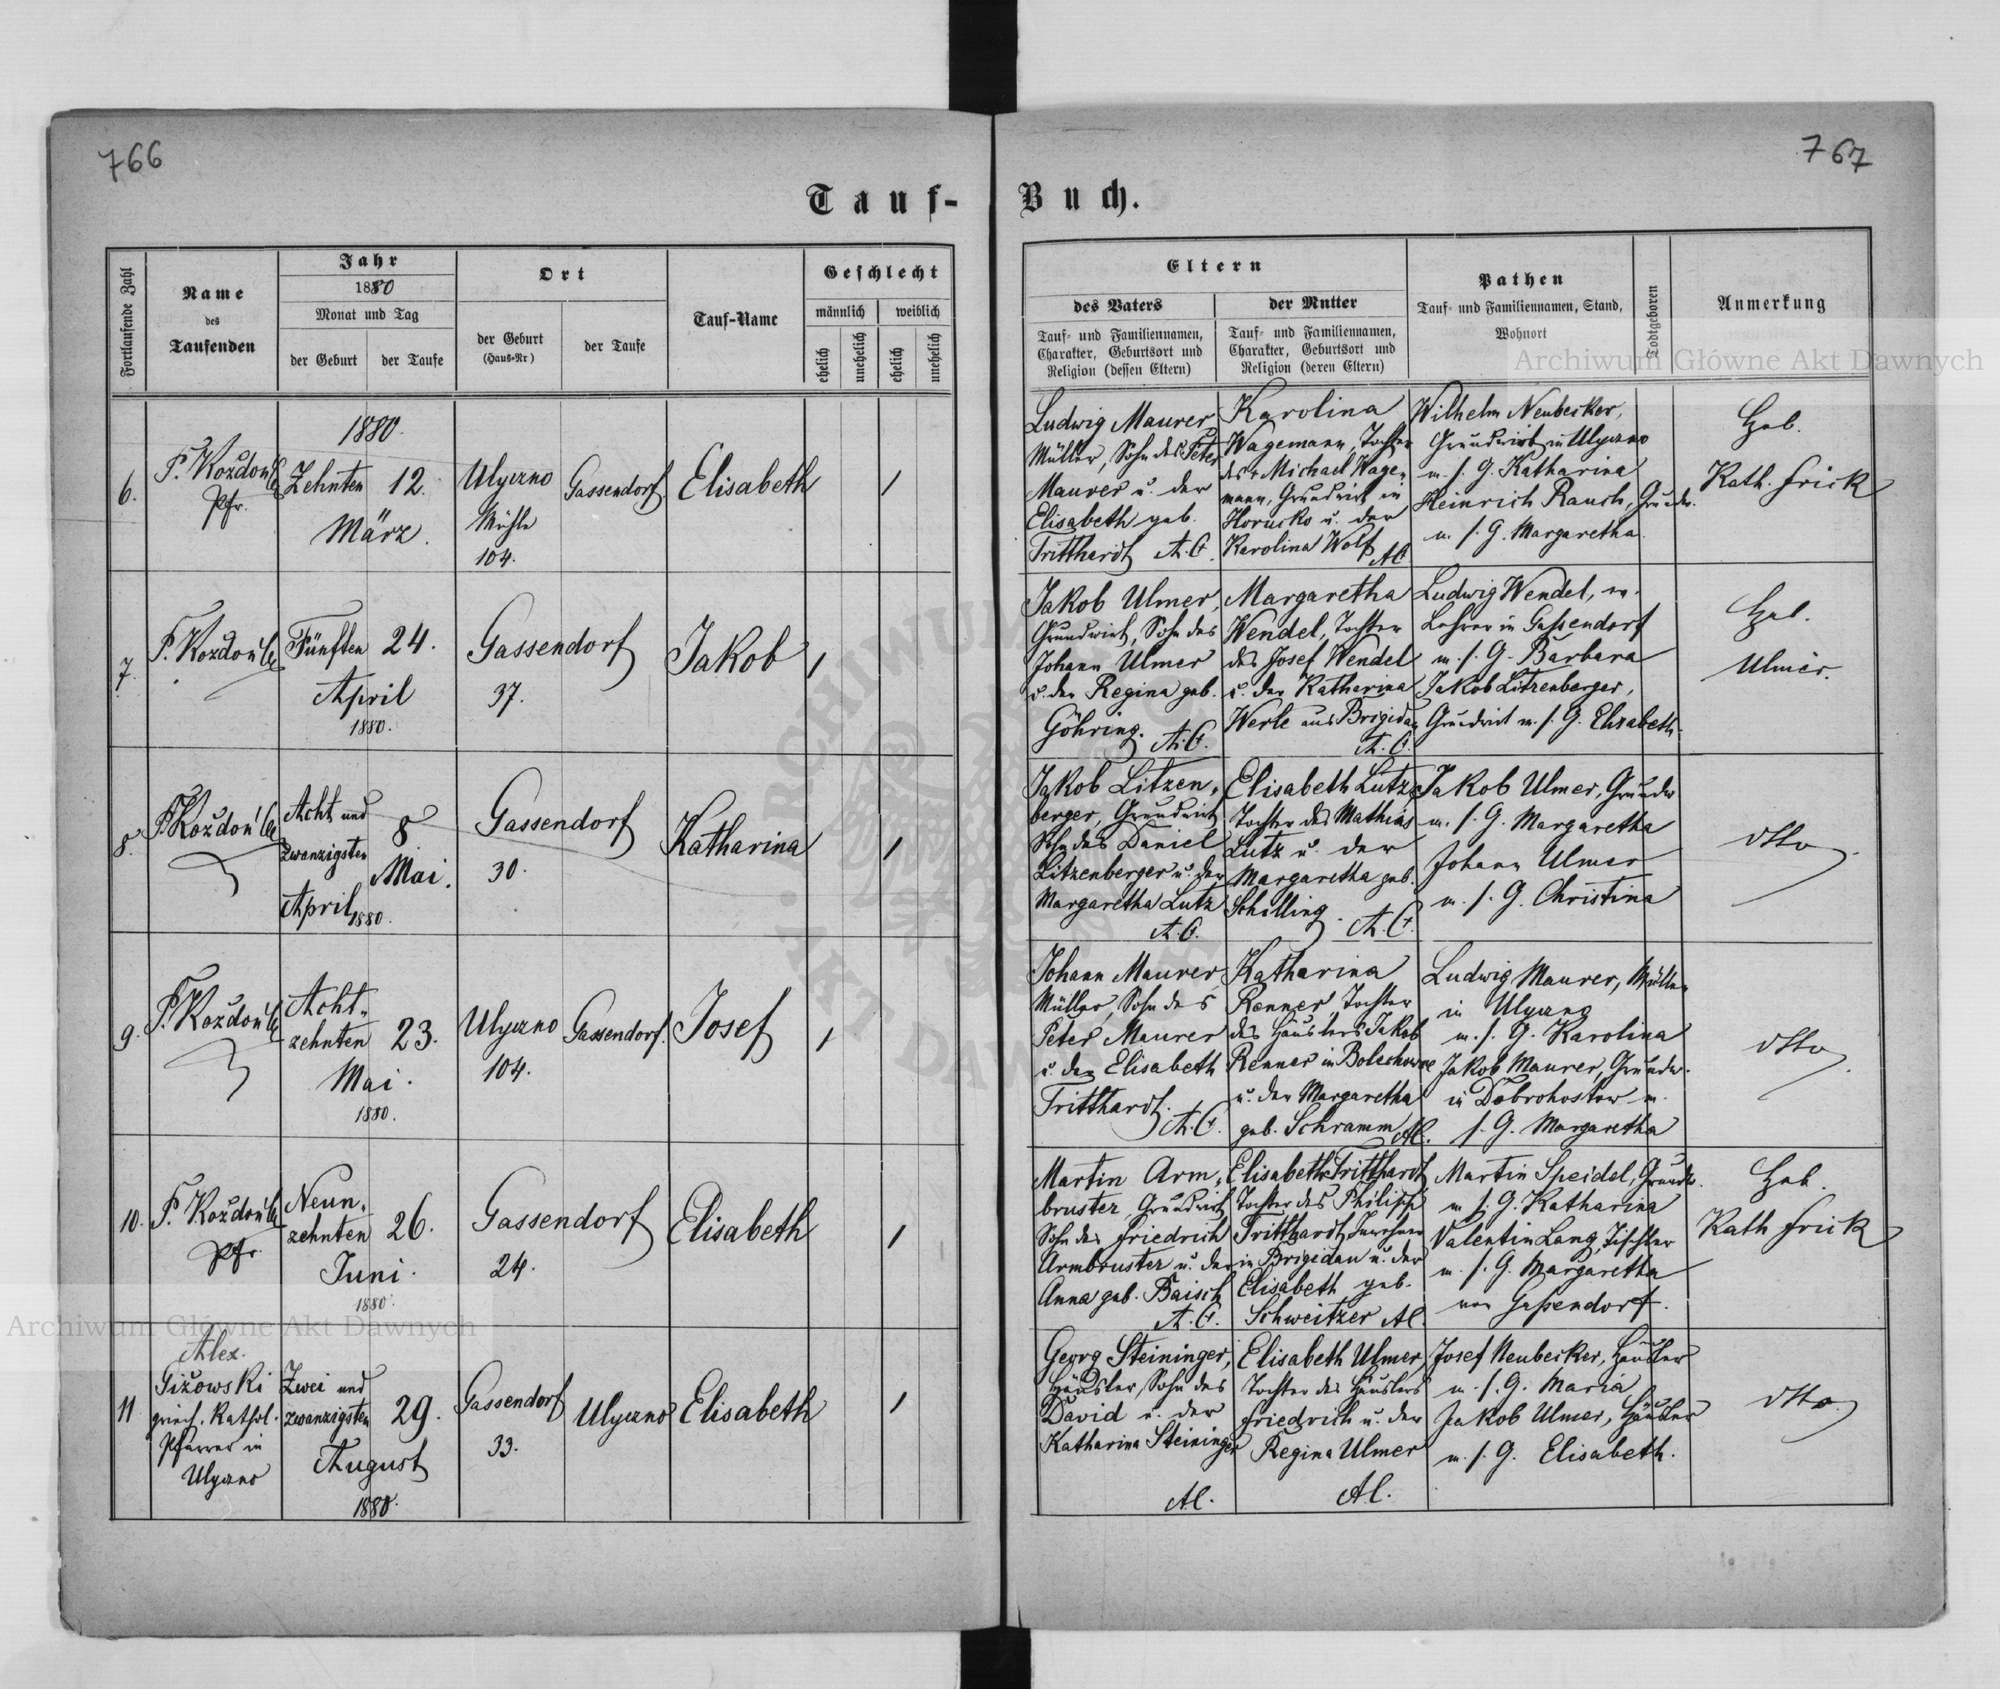 766
767
Tauf-
Buch.
Fortlaufende Zahl
Name
des
Taufenden
Jahr
1880
Monat und Tag
der Geburt
der Taufe
Ort
der Geburt
(Haus-Nr)
der Taufe
Tauf-Name
Geschlecht
männlich
weiblich
ehelich
unehelich
ehelich
unehelich
Eltern
des Vaters
Tauf- und Familiennamen,
Charakter, Geburtsort und
Religion (dessen Eltern)
der Mutter
Tauf- und Familiennamen,
Charakter, Geburtsort und
Religion (deren Eltern)
Pathen
Tauf- und Familiennamen, Stand,
Wohnort
Todtgeboren
Anmerkung
Archiwum Główne Akt Dawnych
6.
Pfr.
1880.
Zehnten
12.
März.
Ulyczno
Mühle
104.
Gassendorf
Elisabeth
1
Ludwig Maurer
Müller, Sohn des Peter
Maurer u. der
Elisabeth geb.
Tritthardt A.C.
Karolina
Wagemann, Tochter
des Michael Wage-
mann, Grundwirt in
Horucko u. der
Karolina Wolf AC
Wilhelm Neubecker,
Grundwirt in Ulyczno
m. s. G. Katharina
Heinrich Rauch, Grundw.
m. s. G. Margaretha.
Heb.
Kath. Frick
7.
Fünften
24.
April
1880.
Gassendorf
37.
Jakob
1
Jakob Ulmer,
Grundwirt, Sohn des
Johann Ulmer
u. der Regina geb.
Göhring. A.C.
Margaretha
Wendel, Tochter
des Josef Wendel
u. der Katharina
Werle aus Brigidau
A.C.
Ludwig Wendel,
Lehrer in Gaßendorf
m. s. G. Barbara
Jakob Litzenberger,
Grundwirt m. s. G. Elisabeth.
Heb.
Ulmer.
8.
Acht und
zwanzigsten
April 1880.
8
Mai.
Gassendorf
30.
Katharina
1
Jakob Litzen-
berger, Grundwirt
Sohn des Daniel
Litzenberger u. der
Margaretha Lutz
A.C.
Elisabeth Lutz,
Tochter des Mathias
Lutz u. der
Margaretha geb.
Schilling. A.C.
Jakob Ulmer, Grundw
m. s. G. Margaretha
Johann Ulmer
m. s. G. Christina
dtto
9.
Acht-
zehnten
23.
Mai.
1880.
Ulyczno
104.
Gassendorf.
Josef
1
Johann Maurer,
Müller, Sohn des
Peter Maurer
u. der Elisabeth
Tritthardt.
A.C.
Katharina
Renner, Tochter
des Häuslers Jakob
Renner in Bolechow
u. der Margaretha
geb. Schramm AC.
Ludwig Maurer, Müller
in Ulyczno
m. s. G. Karolina
Jakob Maurer, Grundw.
in Dobrohostow m.
s. G. Margaretha
dtto
10.
Pfr
Neun-
zehnten
26.
Juni.
1880.
Gassendorf
24.
Elisabeth
1
Martin Arm-
bruster, Grundwirt
Sohn des Friedrich
Armbruster u. der
Anna geb. Baisch
A.C.
Elisabeth Tritthardt
Tochter des Philipp
Tritthardt,
in Brigidau u. der
Elisabeth geb.
Schweitzer AC.
Martin Speidel, Grundw.
m. s. G. Katharina
Valentin Lang, Tischler
m. s. G. Margaretha
von Gaßendorf.
Heb.
Kath Frick
11
Alex.
Giżowski
griech. Kathol.
Pfarrer in
Ulyczno
Zwei und
zwanzigsten
29.
August
1880.
Gassendorf
33.
Ulyczno
Elisabeth
1
Georg Steininger,
Häusler, Sohn des
David u. der
Katharina Steininger
AC.
Elisabeth Ulmer,
Tochter des Häuslers
Friedrich u. der
Regina Ulmer
AC.
Josef Neubecker, Häusler
m. s. G. Maria
Jakob Ulmer, Häusler
m. s. G. Elisabeth.
dtto
Archiwum Główne Akt Dawnych